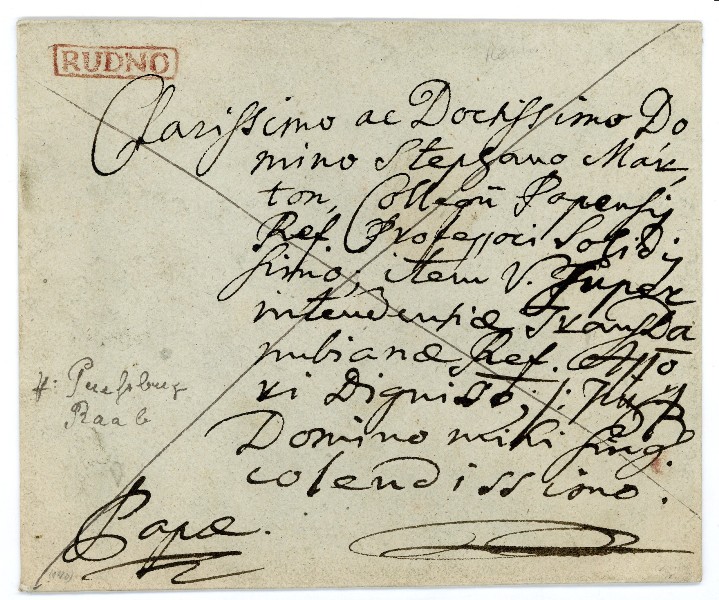 RUDNO
Clarissimo ac Doctissimo Do
mino Stephano Már
ton, Collegii Papensis
Ref. Professori Solidis
simo, item V. Super
intendentiæ Transda
nubianæ Ref. Asso
ri Digniso,
Domino mihi sing.
colendissimo.
Papæ.
Raab